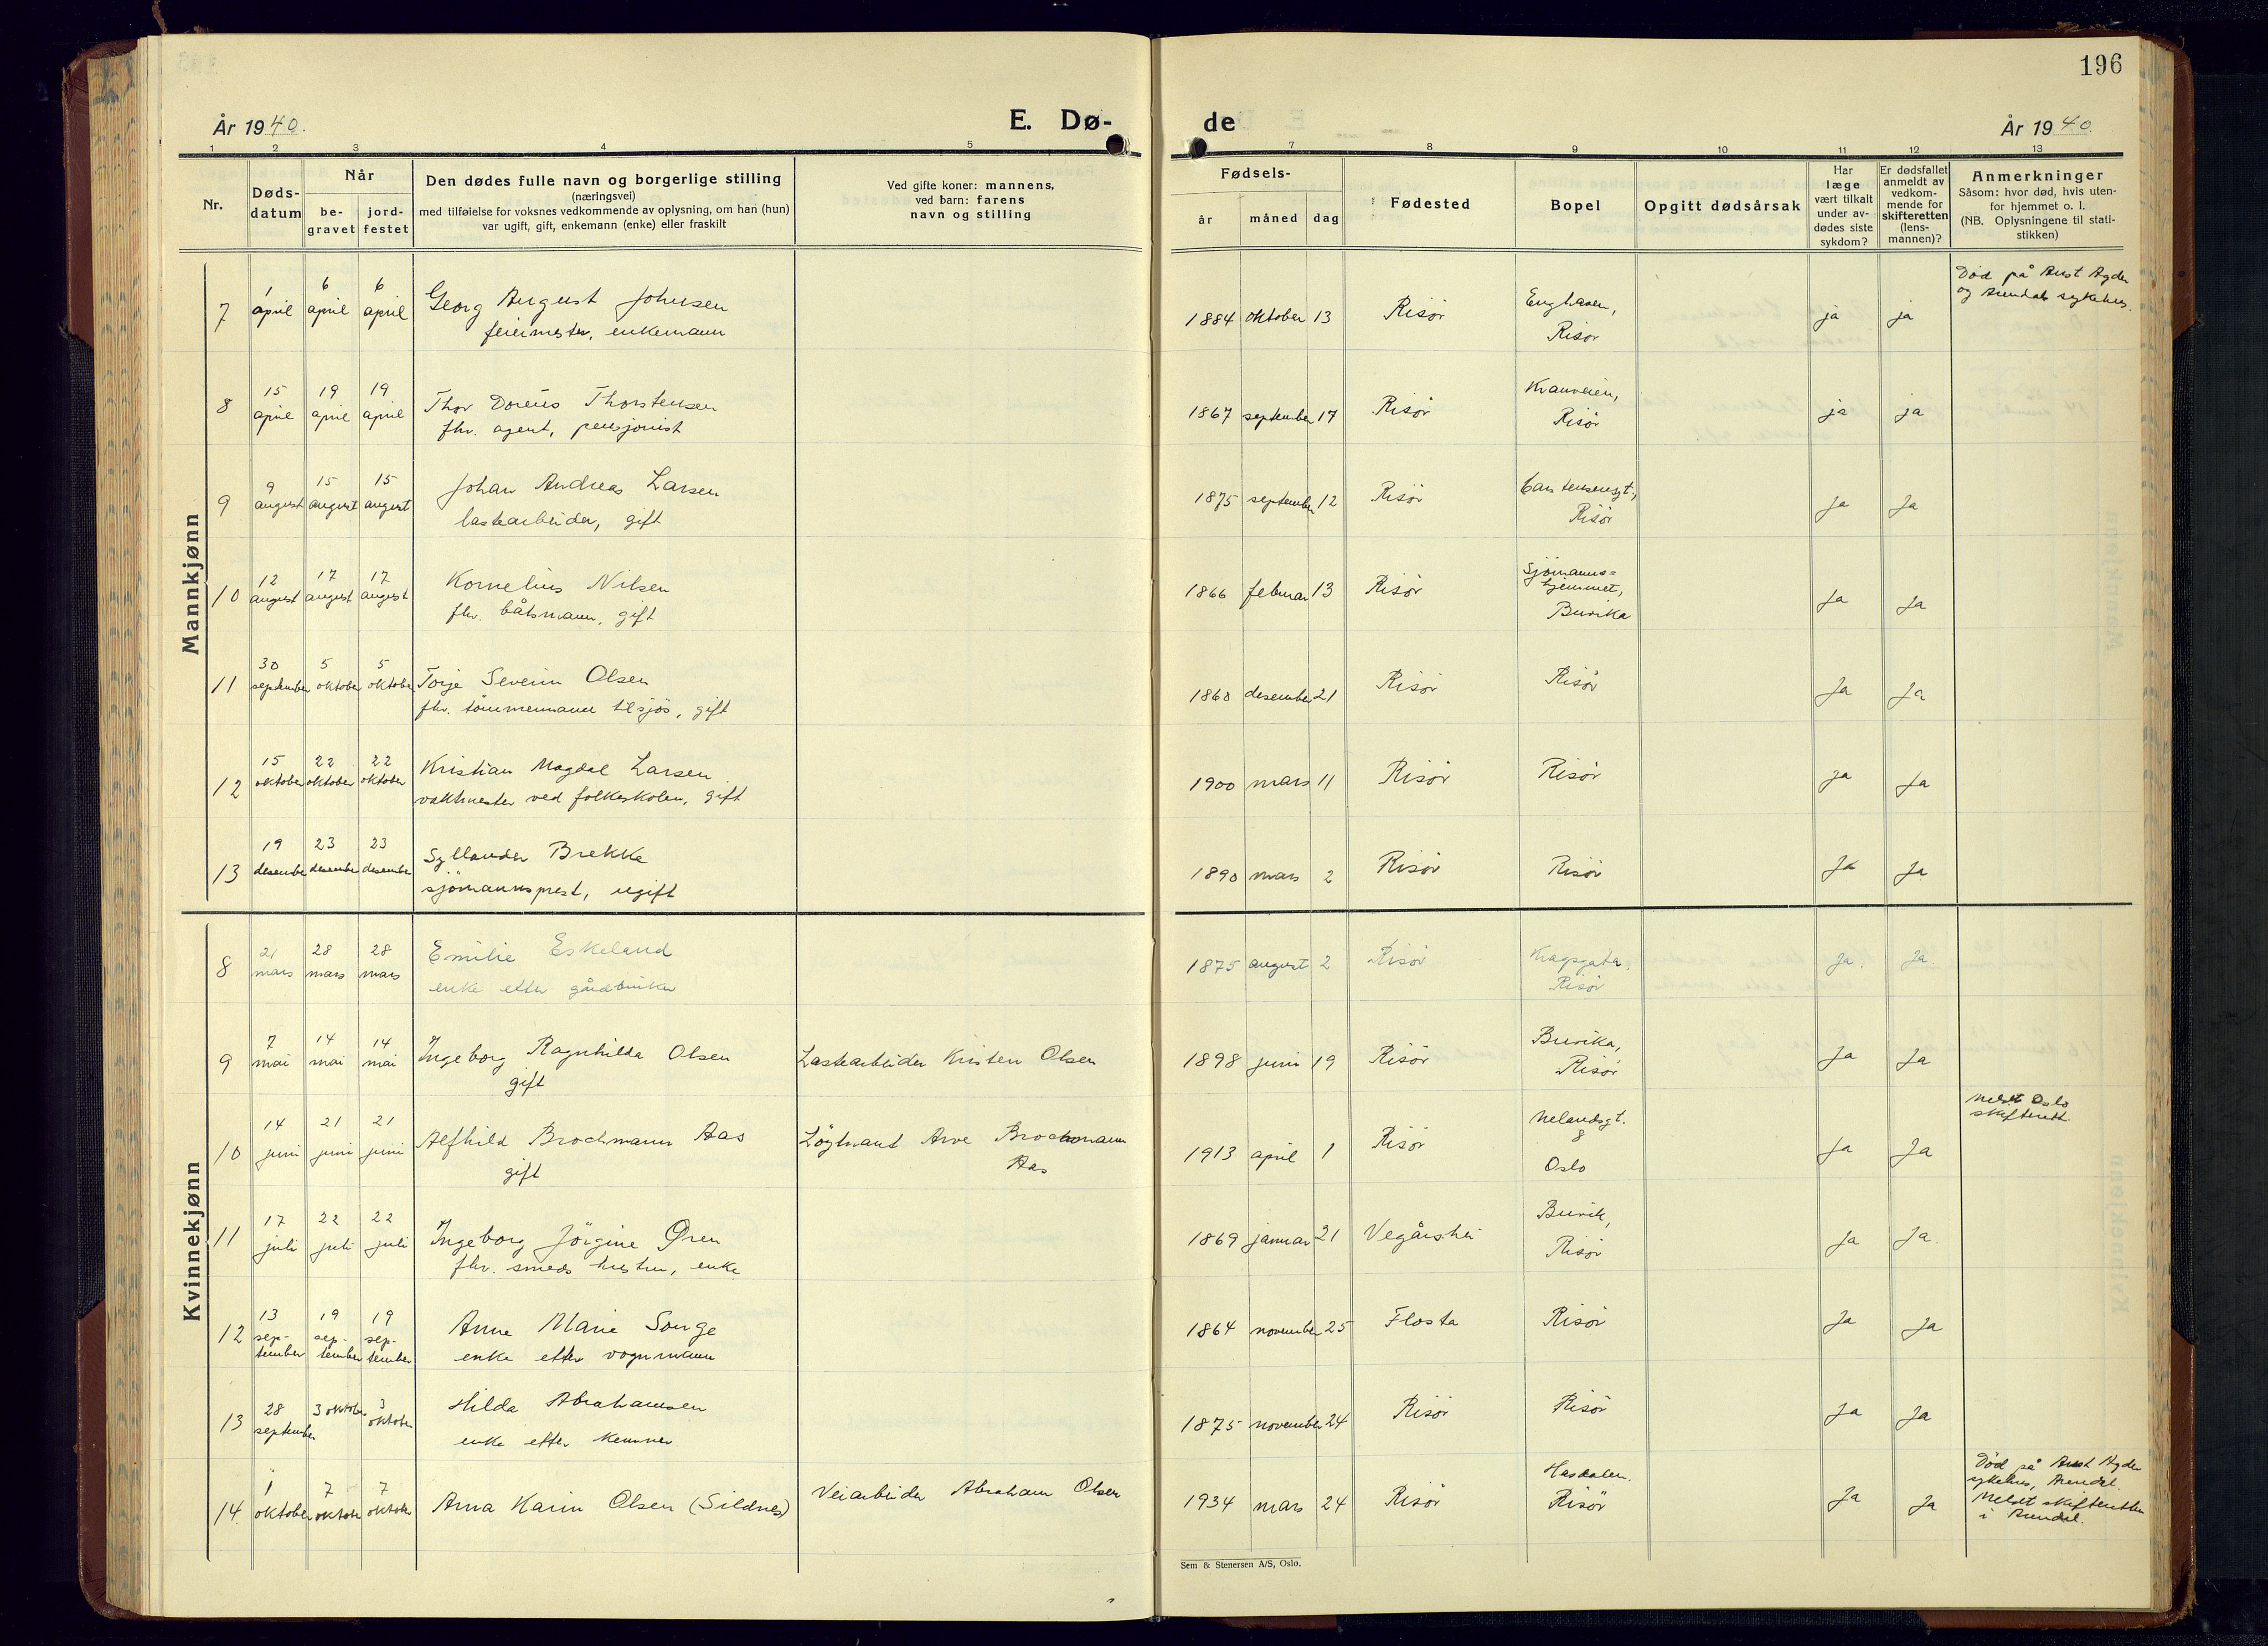 196
År 1940.
E. Dø-
de
År 1940.
1 2 3 4 5 7 8 9 10 11 12 13
Nr.
Døds-
datum
Når
be-
gravet
jord-
festet
Den dødes fulle navn og borgerlige stilling
(næringsvei)
med tilføielse for voksnes vedkommende av oplysning, om han (hun)
var ugift, gift, enkemann (enke) eller fraskilt
Ved gifte koner: mannens,
ved barn: farens
navn og stilling
Fødsels-
år måned dag
Fødested
Bopel
Opgitt dødsårsak
Har
læge
vært tilkalt
under av-
dødes siste
sykdom?
Er dødsfallet
anmeldt av
vedkom-
mende for
skifteretten
(lens-
mannen)?
Anmerkninger
Såsom: hvor død, hvis uten-
for hjemmet o. l.
(NB. Oplysningene til stati-
stikken)
Mannkjønn
7 1 april 6 april 6 april Georg August Johnsen
feiermester, enkemann
1884 oktober 13 Risör Enghaven,
Risör
ja ja
Död på Aust Agder
og Arendals sykehus.
8 15 april 19 april 19 april Thor Doreus Thorstensen
fhv. agent, pensjonist
1867 september 17 Risör Kranveien,
Risör
ja ja
9 9 august 15 august 15 august Johan Andreas Larsen
lastearbeider, gift
1875 september 12 Risör Carstensensgt.,
Risör
Ja Ja
10 12 august 17 august 17 august Kornelius Nilsen
fhv. båtsmann, gift
1866 februar 13 Risör Sjömanns=
hjemmet,
Buvika
Ja Ja
11 30 september 5 oktober 5 oktober Torje Severin Olsen
fhv. tömmermann tilsjös, gift
1860 desember 21 Risör Risör
Ja Ja
12 15 oktober 22 oktober 22 oktober Kristian Magdal Larsen
vaktmester ved folkeskolen, gift
1900 mars 11 Risör Risör
ja Ja
13 19 desember 23 desember 23 desember Syllander Brekke
sjömannsprest, ugift
1890 mars 2 Risör Risör
Ja Ja
Kvinnekjønn
8 21 mars 28 mars 28 mars Emilie Eskeland
enke etter gårdbruker
1875 august 2 Risör Kragsgata,
Risör
Ja. Ja.
9 7 mai 14 mai 14 mai Ingeborg Ragnhilda Olsen
gift
Lastearbeider Kristen Olsen
1898 juni 19 Risör Buvika,
Risör
Ja Ja
10 14 juni 21 juni 21 juni Alfhild Brochmann Aas
gift
Löytnant Arve Brochmann
Aas
1913 april 1 Risör Nelandsgt.
8
Oslo
Ja Ja
Meldt Oslo
skifterett.
11 17 juli 22 juli 22 juli Ingeborg Jörgine Øren
fhv. smeds hustru, enke
1869 januar 21 Vegårshei Buvik,
Risör
Ja Ja.
12 13 sep-
tember 19 sep-
tember 19 sep-
tember Anne Marie Songe
enke etter vognmann
1864 november 25 Flosta Risör
Ja Ja
13 28 september 3 oktober 3 oktober Hilda Abrahamsen
enke etter kemner
1875 november 24 Risör Risör
Ja Ja
14. 1 oktober 7 oktober 7 oktober Anna Karin Olsen (Sildnes)
Veiarbeider Abraham Olsen
1934 mars 24 Risör Hasdalen.
Risör
Ja Ja
Död på Aust Agder
sykehus, Arendal.
Meldt skifteretten
i Arendal.
Sem & Stenersen A/S, Oslo.